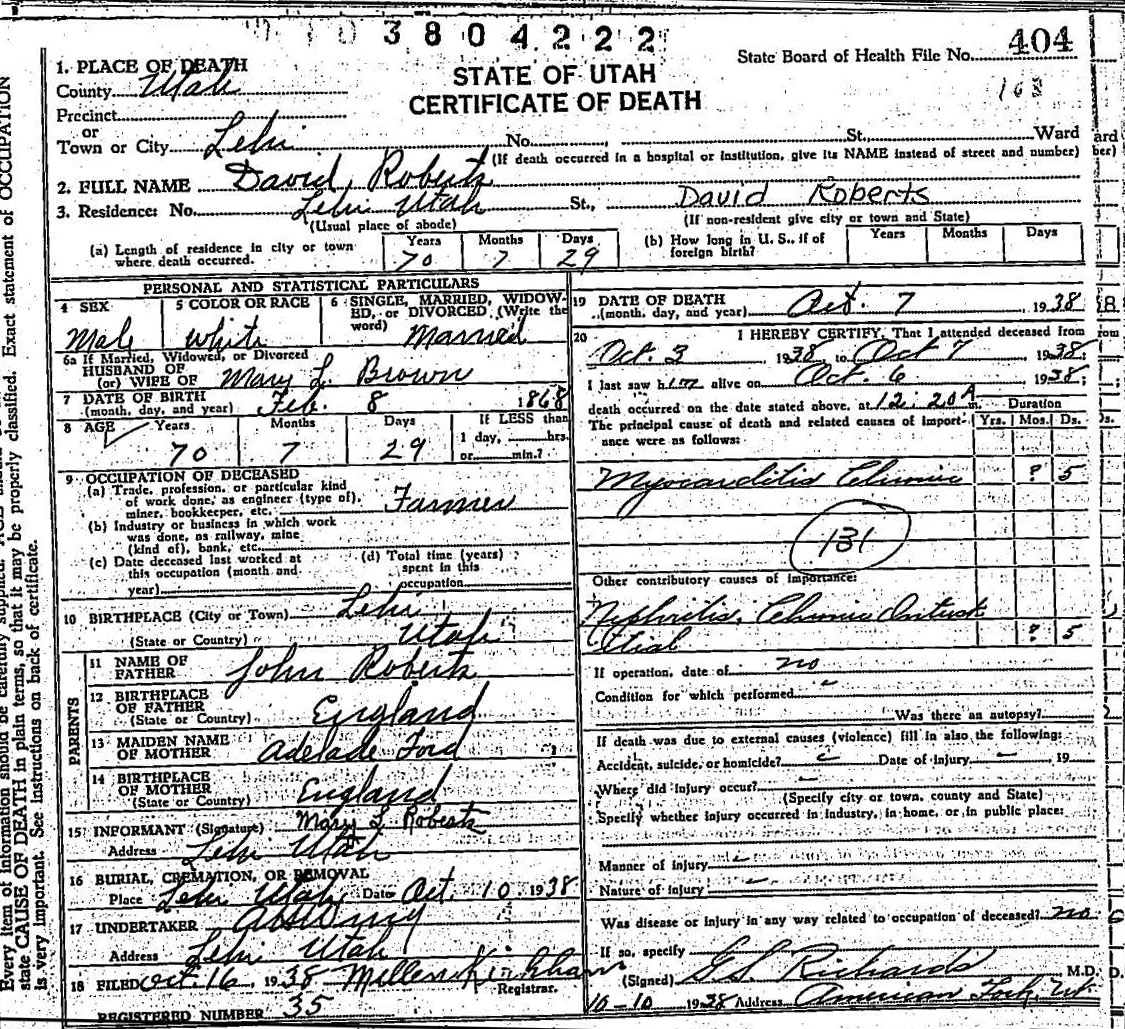 3804222
State Board of Health File No. 404
STATE OF UTAH
CERTIFICATE OF DEATH
1. PLACE OF DEATH
County Utah
Precinct
or
Town or City Lehi No. St. Ward
(If death occurred in a hospital or institution, give its NAME instead of street and number)
2. FULL NAME David Roberts
3. Residence: No. Lehi Utah St., David Roberts
(Usual place of abode) (If non-resident give city or town and State)
(a) Length of residence in city or town where death occurred. Years 70 Months 7 Days 29
(b) How long in U. S., if of foreign birth? Years Months Days
PERSONAL AND STATISTICAL PARTICULARS
4 SEX Male
5 COLOR OR RACE White
6 SINGLE, MARRIED, WIDOWED, or DIVORCED (Write the word) Married
6a If Married, Widowed, or Divorced
HUSBAND OF
(or) WIFE OF Mary L. Brown
7 DATE OF BIRTH
(month, day, and year) Feb. 8 1868
8 AGE Years 70 Months 7 Days 29 If LESS than 1 day, hrs. or min.?
9 OCCUPATION OF DECEASED
(a) Trade, profession, or particular kind of work done, as engineer (type of), miner, bookkeeper, etc. Farmer
(b) Industry or business in which work was done, as railway, mine (kind of), bank, etc.
(c) Date deceased last worked at this occupation (month and year)
(d) Total time (years) spent in this occupation
10 BIRTHPLACE (City or Town) Lehi
(State or Country) Utah
PARENTS
11 NAME OF FATHER John Roberts
12 BIRTHPLACE OF FATHER
(State or Country) England
13 MAIDEN NAME OF MOTHER Adelade Ford
14 BIRTHPLACE OF MOTHER
(State or Country) England
15 INFORMANT (Signature) Mary L Roberts
Address Lehi Utah
16 BURIAL, CREMATION, OR REMOVAL
Place Lehi Utah, Date Oct. 10 1938
17 UNDERTAKER
Address Lehi Utah
18 FILED Oct. 16, 1938
Registrar.
REGISTERED NUMBER 35
19 DATE OF DEATH
(month, day, and year) Oct. 7 1938
20 I HEREBY CERTIFY, That I attended deceased from
Oct. 3 1938, to Oct 7 1938;
I last saw him alive on Oct. 6 1938;
death occurred on the date stated above, at 12:20 A m. Duration
The principal cause of death and related causes of importance were as follows: Yrs. Mos. Ds.
Myocarditis Chronic ? 5
131
Other contributory causes of importance:
Nephritis, Chronic Interstitial ? 5
If operation, date of no
Condition for which performed
Was there an autopsy?
If death was due to external causes (violence) fill in also the following:
Accident, suicide, or homicide? Date of injury 19
Where did injury occur?
(Specify city or town, county and State)
Specify whether injury occurred in industry, in home, or in public place:
Manner of injury
Nature of injury
Was disease or injury in any way related to occupation of deceased? no
If so, specify
(Signed) G S Richards M.D.
10-10 1938 Address American Fork, Ut
Every item of information should be carefully supplied.
state CAUSE OF DEATH in plain terms, so that it may be properly classified. Exact statement of OCCUPATION
is very important. See instructions on back of certificate.